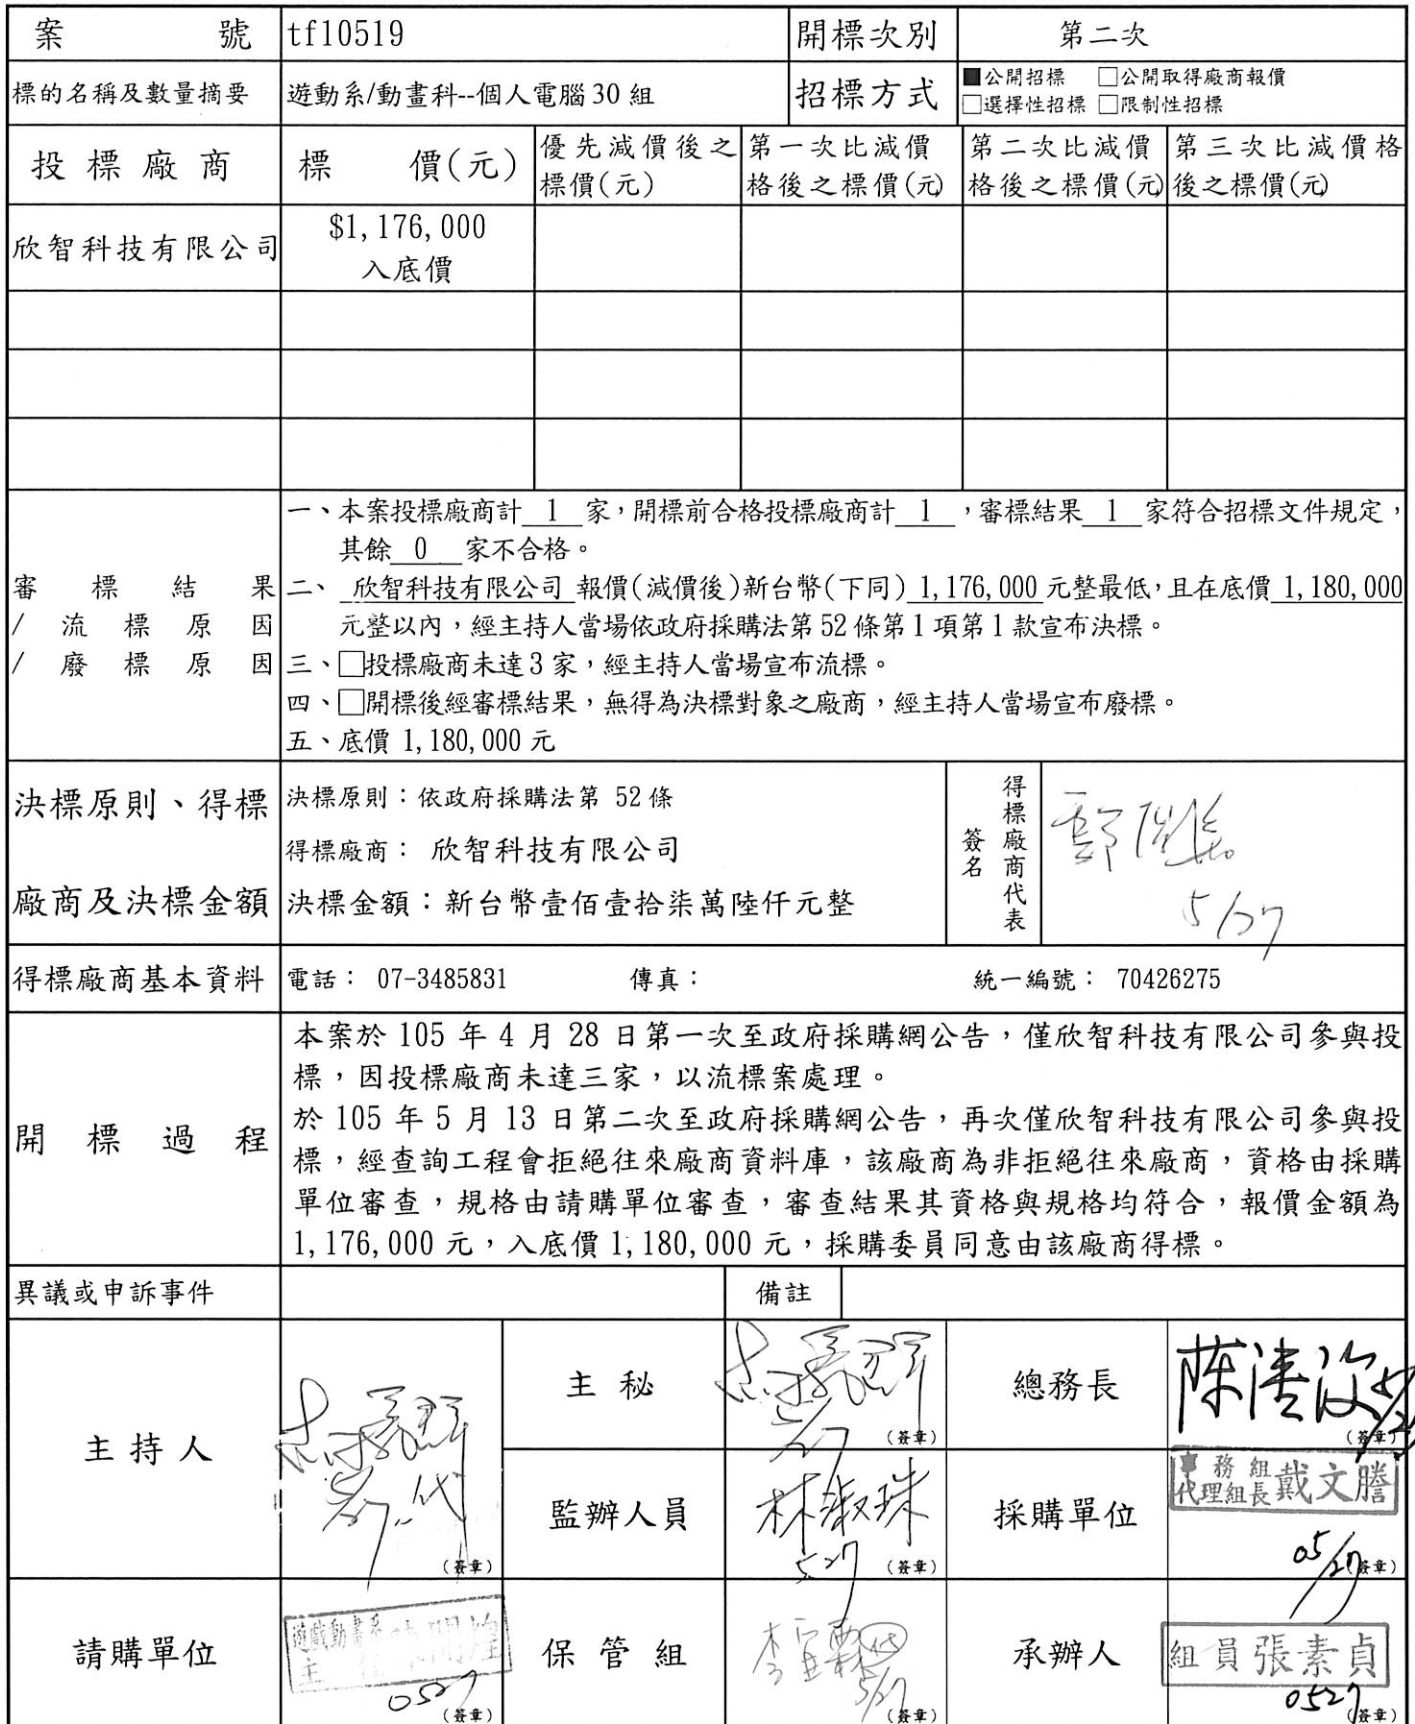 案 號 tf10519 開標次別 第二次
標的名稱及數量摘要 遊動系/動畫科--個人電腦 30 組 招標方式 ■公開招標 □公開取得廠商報價
□選擇性招標 □限制性招標
投標廠商 標 價(元) 優先減價後之 第一次比減價 第二次比減價 第三次比減價格
標價(元) 格後之標價(元) 格後之標價(元) 後之標價(元)
欣智科技有限公司 $1,176,000
入底價
審標結果
/流標原因
/廢標原因
一、本案投標廠商計 1 家,開標前合格投標廠商計 1 ,審標結果 1 家符合招標文件規定,
其餘 0 家不合格。
二、 欣智科技有限公司 報價(減價後)新台幣(下同) 1,176,000 元整最低,且在底價 1,180,000
元整以內,經主持人當場依政府採購法第 52 條第 1 項第 1 款宣布決標。
三、□投標廠商未達 3 家,經主持人當場宣布流標。
四、□開標後經審標結果,無得為決標對象之廠商,經主持人當場宣布廢標。
五、底價 1,180,000 元
決標原則、得標
廠商及決標金額
決標原則:依政府採購法第 52 條
得標廠商: 欣智科技有限公司
決標金額:新台幣壹佰壹拾柒萬陸仟元整
得標廠商代表
簽名
5/27
得標廠商基本資料 電話: 07-3485831 傳真: 統一編號: 70426275
開標過程
本案於 105 年 4 月 28 日第一次至政府採購網公告,僅欣智科技有限公司參與投
標,因投標廠商未達三家,以流標案處理。
於 105 年 5 月 13 日第二次至政府採購網公告,再次僅欣智科技有限公司參與投
標,經查詢工程會拒絕往來廠商資料庫,該廠商為非拒絕往來廠商,資格由採購
單位審查,規格由請購單位審查,審查結果其資格與規格均符合,報價金額為
1,176,000 元,入底價 1,180,000 元,採購委員同意由該廠商得標。
異議或申訴事件 備註
主持人 代 (簽章)
主秘 5/27 (簽章)
總務長 (簽章)
監辦人員 林淑珠 5.27 (簽章)
採購單位 務組
代理組長 戴文謄 05/27 (簽章)
請購單位 遊戲動畫系
主 0527 (簽章)
保管組 代 5/27 (簽章)
承辦人 組員張素貞 0527 (簽章)